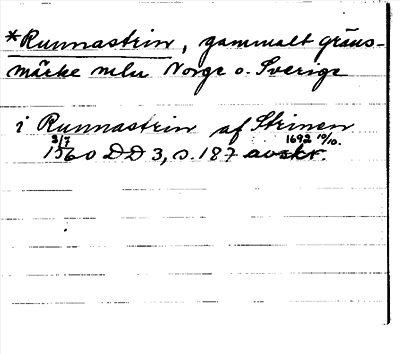 *Runnastein, gammalt gräns-
märke mln Norge o. Sverige
i Runnastein af Steinen
3/7 1692 10/10.
1560 DD 3, s. 187 avskr.